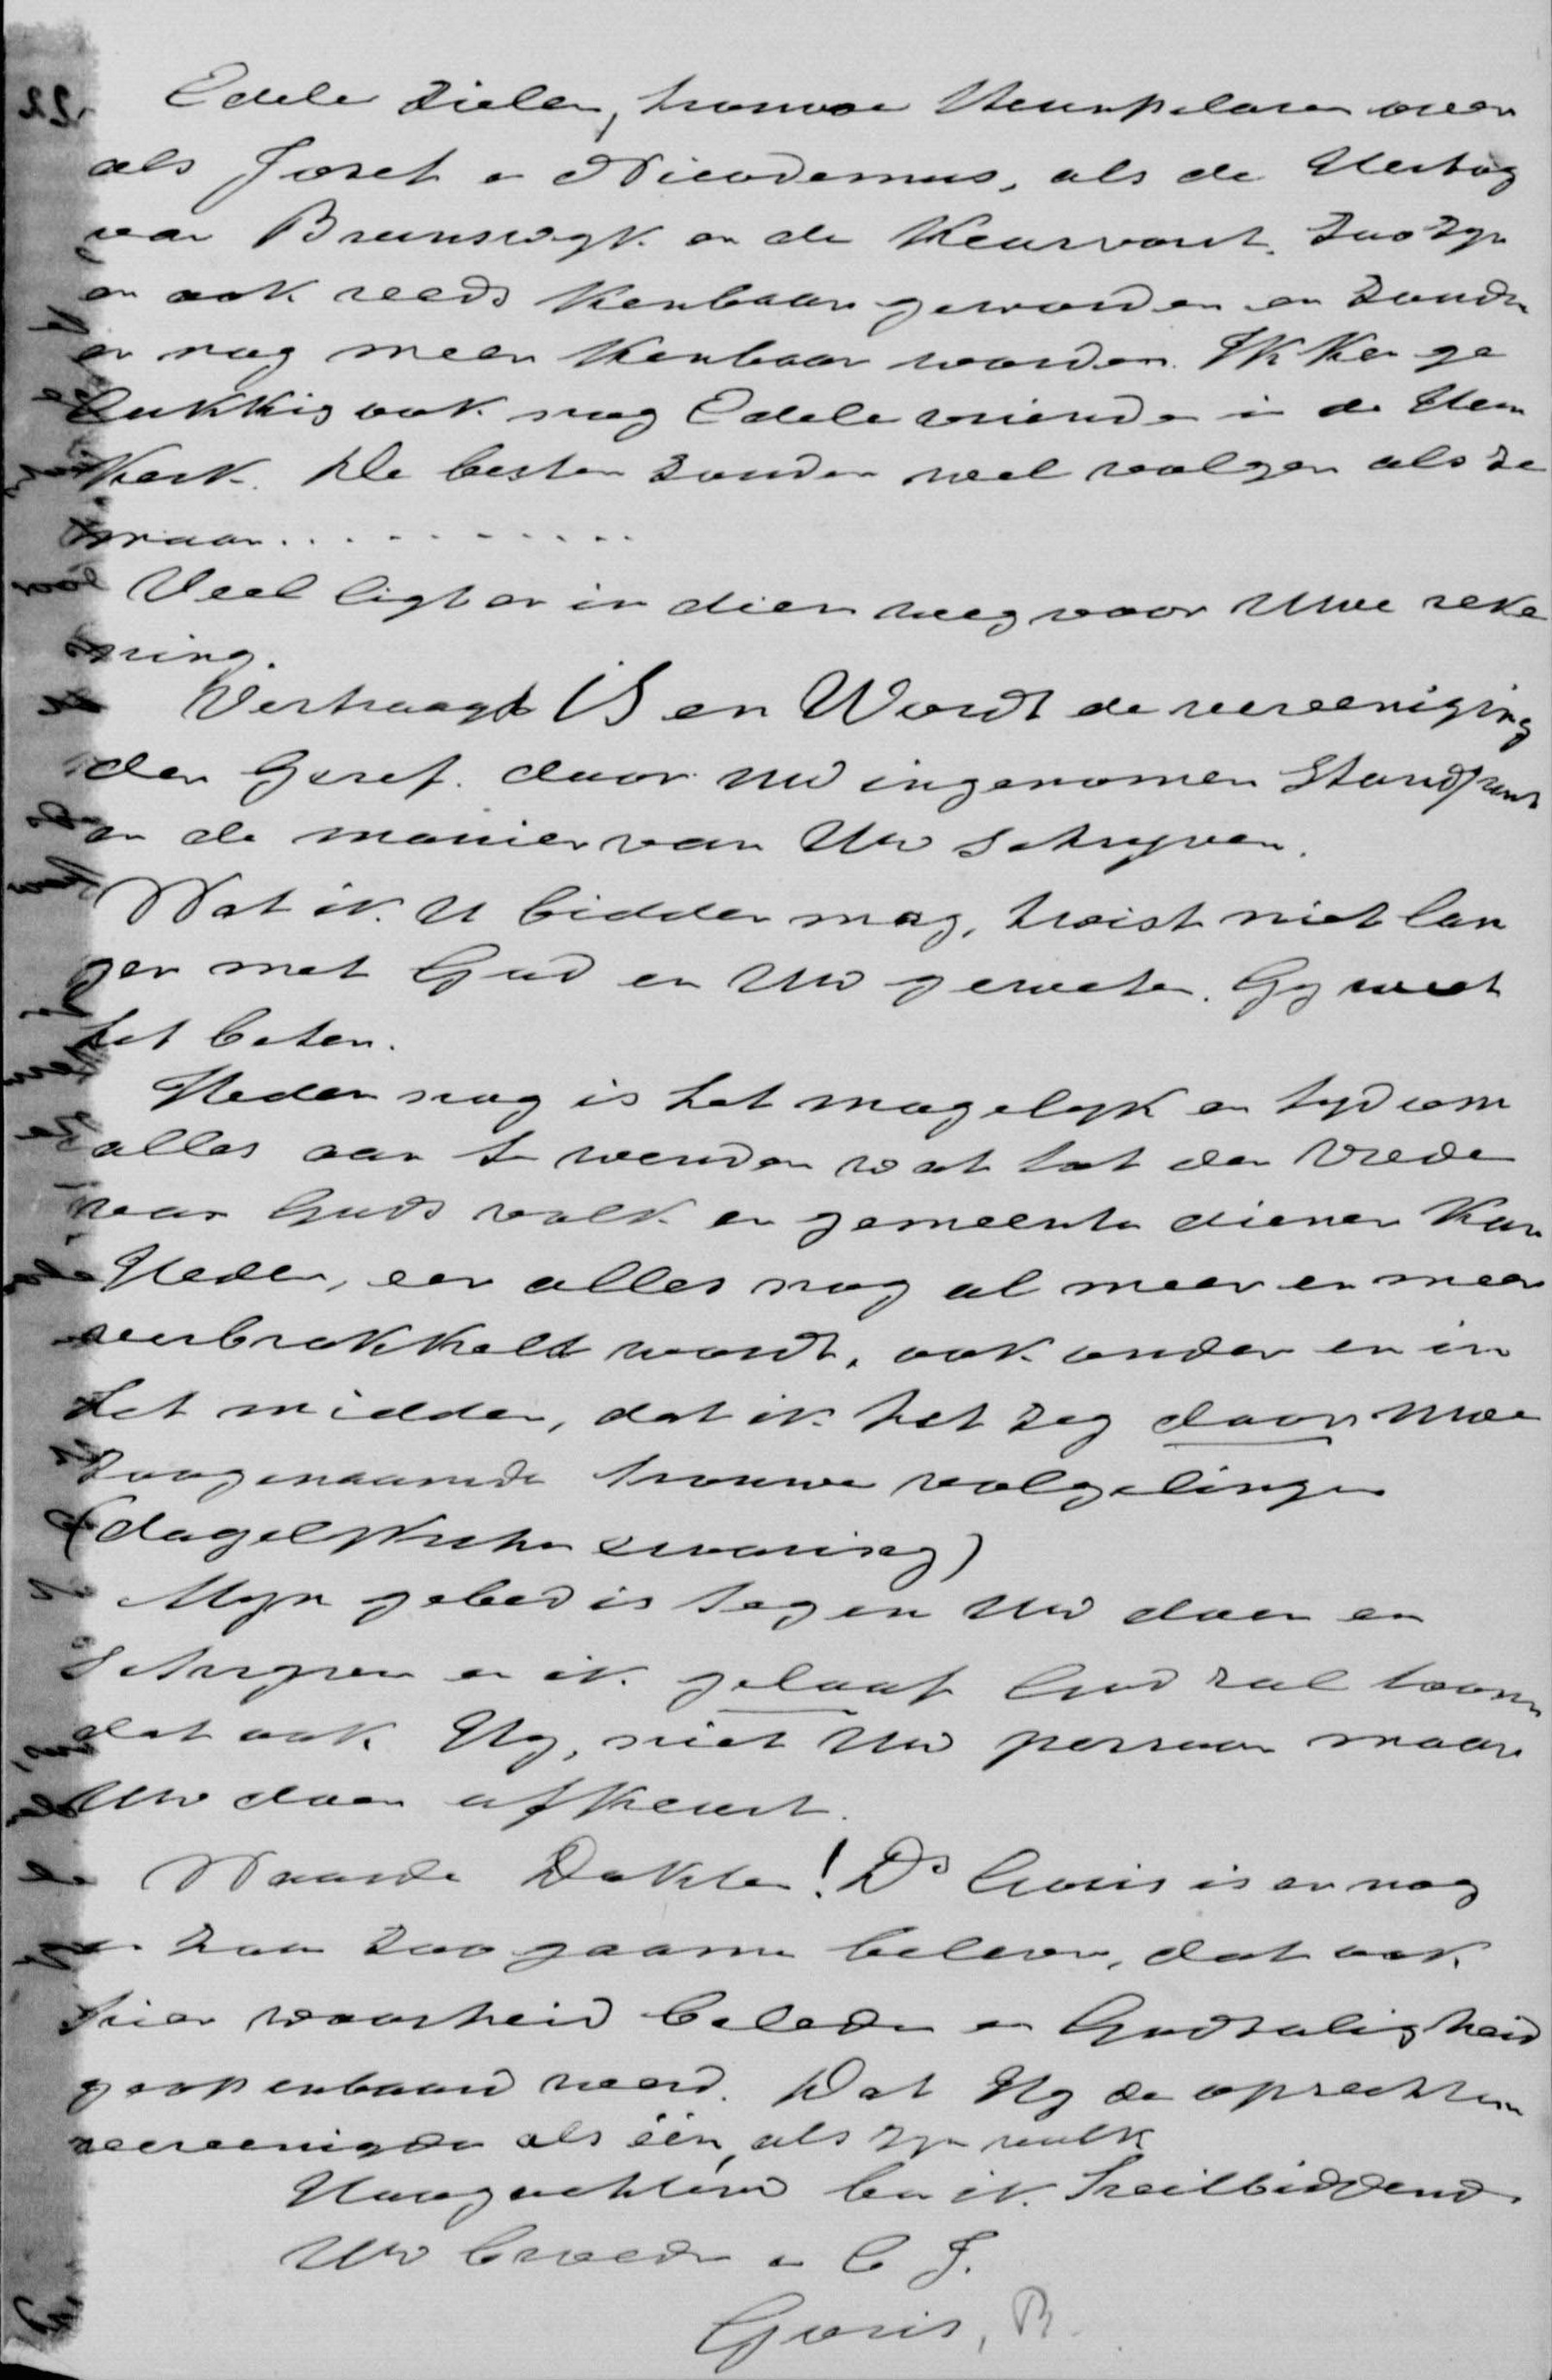 Edele zielen, trouwe steunpilaren even
als Jozef en Nicodemus, als de Hertog
van Brunswyk en de Keurvorst. Zoo zyn
er ook reeds kenbaar geworden en zouden
er nog meer kenbaar worden. Ik ken ge
lukkig ook nog Edele vrienden in de Herv
Kerk. De besten zouden wel volgen als ze
maar...........
Veel ligt er in dien weg voor Uwe reke
ning.
Vertraagd iS en Wordt de vereeniging
der Geref. door Uw ingenomen Standpunt
en de manier van Uw schryven.
Wat ik U bidden mag, twist niet lan
ger met God en Uw geweten. Gy weet
het beter.
Heden nog is het mogelyk en tyd om
alles aan te wenden wat tot den vrede
voor Gods volk en gemeente dienen kan
Heden, eer alles nog al meer en meer
verbrokkeld wordt, ook onder en in
het midden, dat ik het zeg door Uwe
zoogenaamde trouwe volgelingen
(dagelyksche ervaring)
Myn gebed is tegen Uw doen en
schryven en ik geloof God zal toonen
dat ook Hy, niet Uw persoon maar
Uw doen afkeurt.
Waarde Dokter! Ds Goris is er nog
en kan zoo gaarne beleven, dat ook
hier waarheid beleden en Godzaligheid
geopenbaard werd. Dat Hy de oprechten
vereenigde als één, als zyn volk
Hoogachtend ben ik heilbiddend
Uw broeder in C J.
Goris, B.